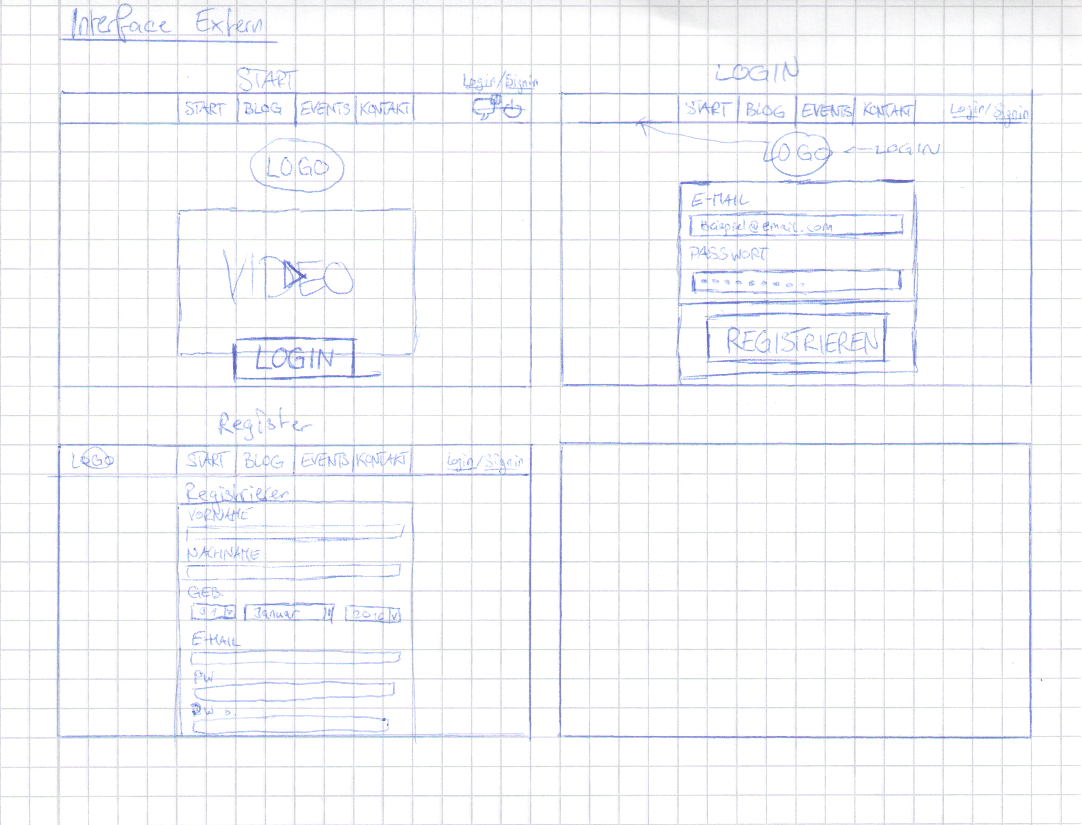 Interface Extern
START
Login/Signin
START BLOG EVENTS KONTAKT
LOGO
VIDEO
LOGIN
LOGIN
START BLOG EVENTS KONTAKT Login/Signin
LOGO ← LOGIN
E-MAIL
Beispiel@email.com
PASSWORT
REGISTRIEREN
Register
LOGO START BLOG EVENTS KONTAKT Login/Signin
Registrieren
VORNAME
NACHNAME
GEB.
Januar 2016
E-MAIL
PW
PW